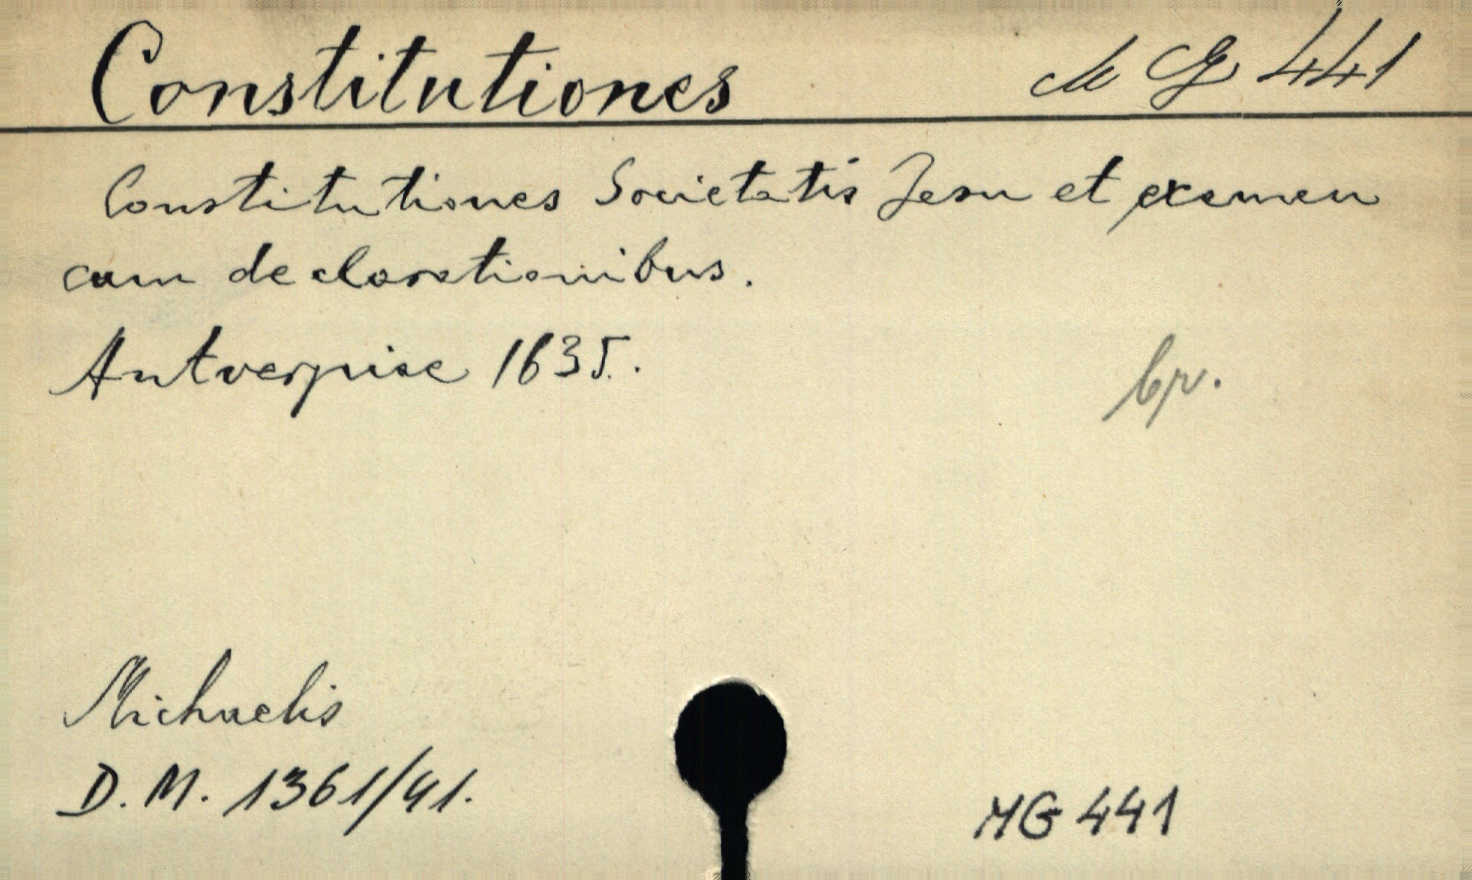 Constitutiones MG 441
Constitutiones Societatis Jesu et examen
cum declarationibus.
Antverpiae 1635.
br.
Michaelis
D. M. 1361/41.
MG 441